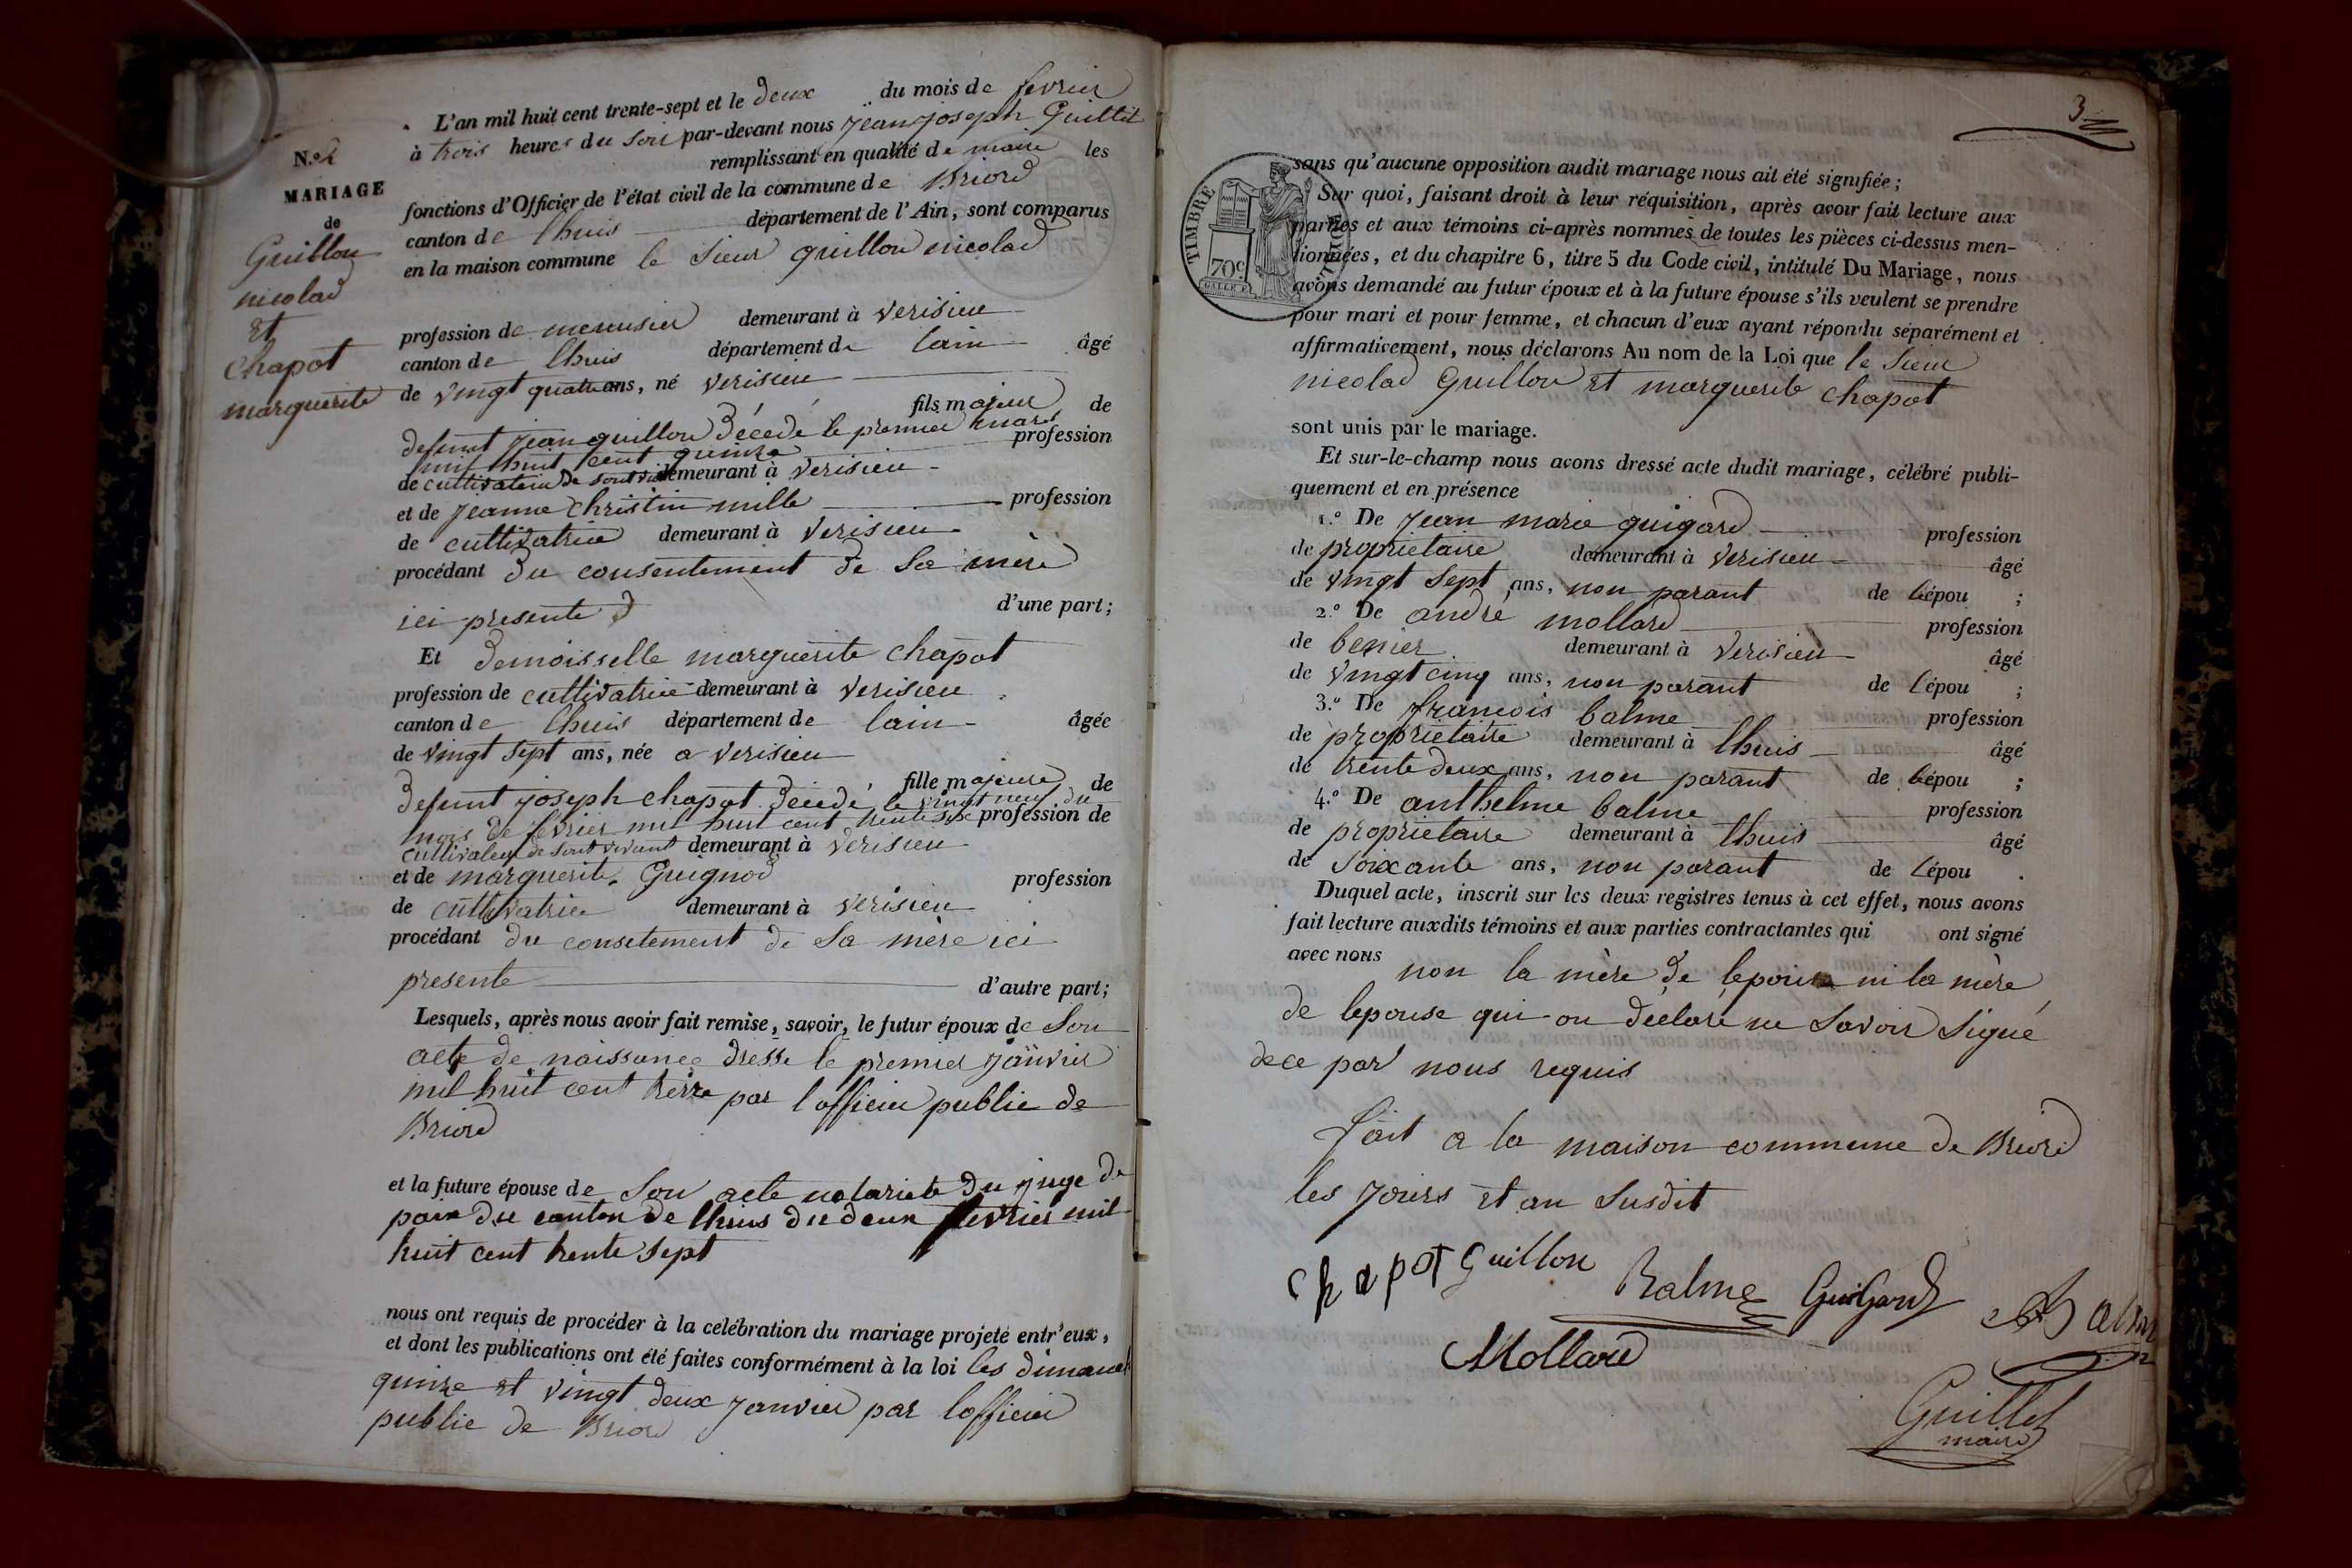 N.o 2
MARIAGE
de
Guillon
nicolas
et
chapot
marguerite
L'an mil huit cent trente-sept et le deux du mois de fevrier
à trois heures du soir par-devant nous jean joseph Guillet
remplissant en qualité de maire les
fonctions d'Officier de l'état civil de la commune de Briord
canton de lhuis département de l'Ain, sont comparus
en la maison commune le sieur guillon nicolas
profession de menusier demeurant à verisieu
canton de lhuis département de lain âgé
de vingt quatre ans, né verisieu
fils majeur de
defunt jean guillon décédé le premier mars
mil huit cent quinze profession
de cultivateur de sont vi demeurant à verisieu
et de jeanne christin mille profession
de cultivatrice demeurant à verisieu
procédant du consentement de sa mère
ici presente d'une part;
Et demoisselle marguerite chapot
profession de cultivatrice demeurant à verisieu
canton de lhuis département de lain âgée
de vingt sept ans, née a verisieu
fille majeure de
defunt joseph chapot décédé le vingt neuf du
mois de fevrier mil huit cent trente six profession de
cultivateur de sont vivant demeurant à verisieu
et de marguerite Guignod profession
de cultivatrice demeurant à verisieu
procédant du consetement de sa mère ici
presente d'autre part;
Lesquels, après nous avoir fait remise, savoir, le futur époux de son
acte de naissance dresse le premier janvier
mil huit cent treize par l officier public de
Briord
et la future épouse de son acte notariete du juge de
paix du canton de lhuis du deux fevrier mil
huit cent trente sept
nous ont requis de procéder à la celébration du mariage projeté entr'eux,
et dont les publications ont été faites conformément à la loi les dimanch
quinze et vingt deux janvier par lofficier
public de Briord
3
TIMBRE
70c
sans qu'aucune opposition audit mariage nous ait été signifiée;
Sur quoi, faisant droit à leur réquisition, après avoir fait lecture aux
parties et aux témoins ci-après nommés de toutes les pièces ci-dessus men-
tionnées, et du chapitre 6, titre 5 du Code civil, intitulé Du Mariage, nous
avons demandé au futur époux et à la future épouse s'ils veulent se prendre
pour mari et pour femme, et chacun d'eux ayant répondu séparément et
affirmativement, nous déclarons Au nom de la Loi que le sieur
nicolas Guillon et marguerite chapot
sont unis par le mariage.
Et sur-le-champ nous avons dressé acte dudit mariage, célébré publi-
quement et en présence
1.o De jean marie guigard profession
de proprietaire demeurant à verisieu âgé
de vingt sept ans, non parant de lépou ;
2.o De andré mollard profession
de demeurant à verisieu âgé
de vingt cinq ans, non parant de lépou ;
3.o De francois balme profession
de proprietaire demeurant à lhuis âgé
de trente deux ans, non parant de lépou ;
4.o De anthelme balme profession
de proprietaire demeurant à lhuis âgé
de soixante ans, non parant de lépou .
Duquel acte, inscrit sur les deux registres tenus à cet effet, nous avons
fait lecture auxdits témoins et aux parties contractantes qui ont signé
avec nous non la mère de lepoux ni la mère
de lepouse qui on déclaré ne savoir signé
dece par nous requis
fait a la maison commune de Briord
les jours et an susdit
chapot Guillon Balme Guigard Balme
Mollard
Guillet
maire